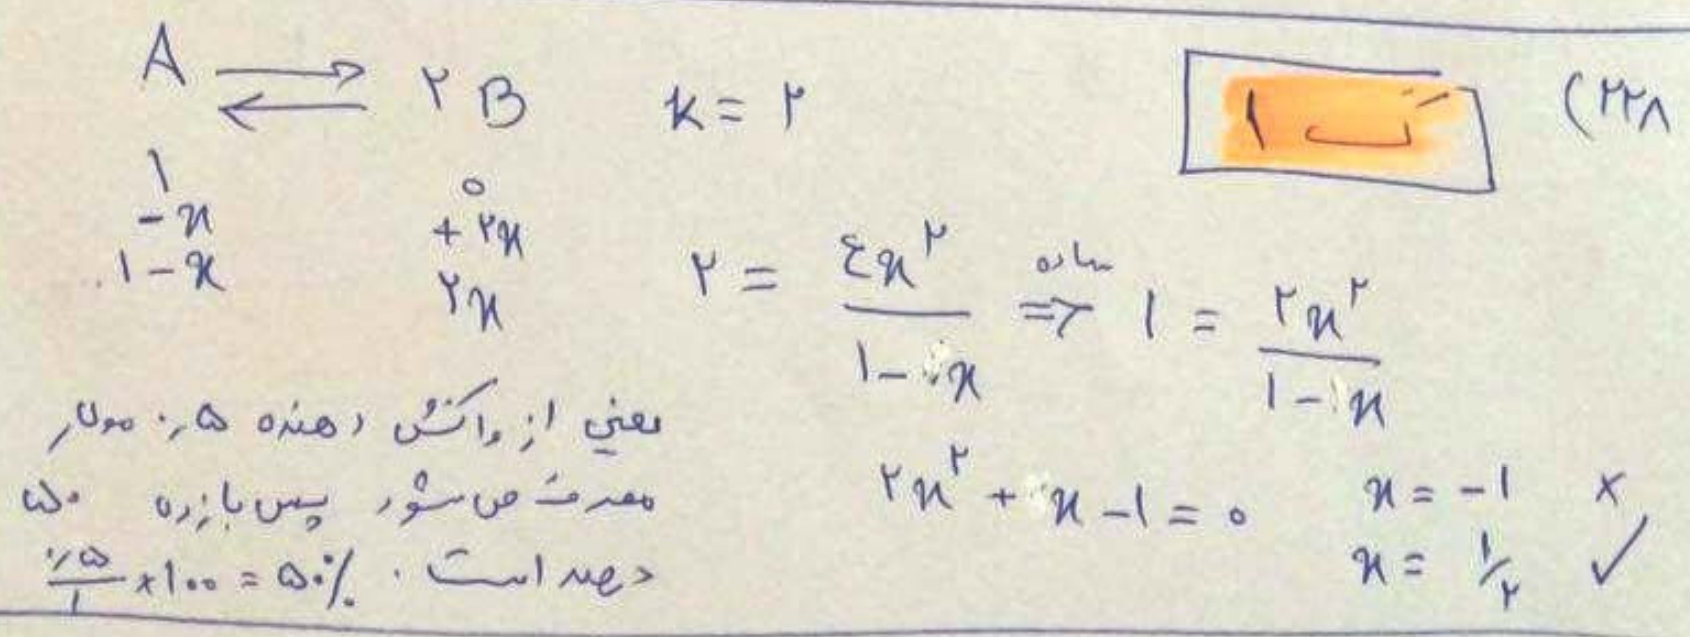 ۲۲۸) ت ۱
A ⇌ ۲ B K = ۲
۱ ۰
-x +۲x
۱-x ۲x
۲ = ۴x^۲ / ۱-x ⇒ ساده ۱ = ۲x^۲ / ۱-x
۲x^۲ + x - ۱ = ۰
x = -۱ ×
x = ۱/۲ ✓
یعنی از واکنش دهنده ۰٫۵ مولار
مصرف می شود پس بازده ۵۰
درصد است. ۰٫۵/۱ × ۱۰۰ = ۵۰٪